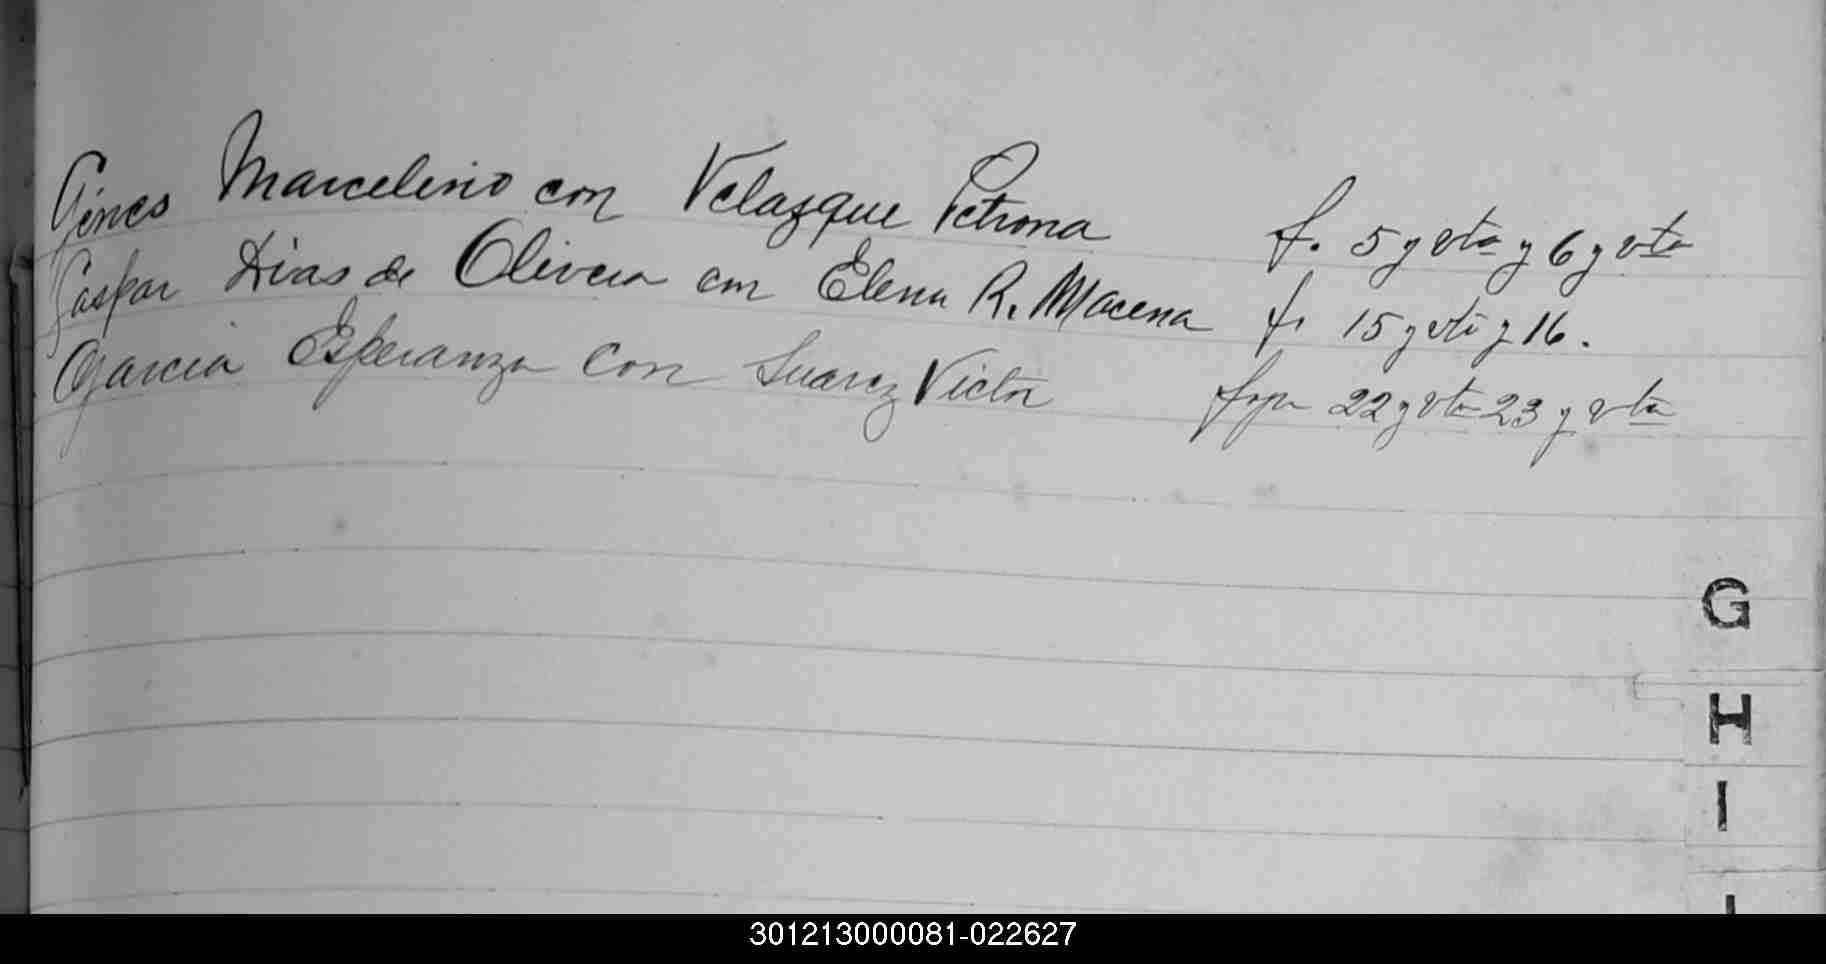 Gines Marcelino con Velazque Petrona f. 5 y vta y 6 y vta
Gaspar Dias de Olivera con Elena R. Macena f. 15 y vta y 16.
Garcia Esperanza con Suarez Victor 22 y vta 23 y vta
G
H
I
301213000081-022627